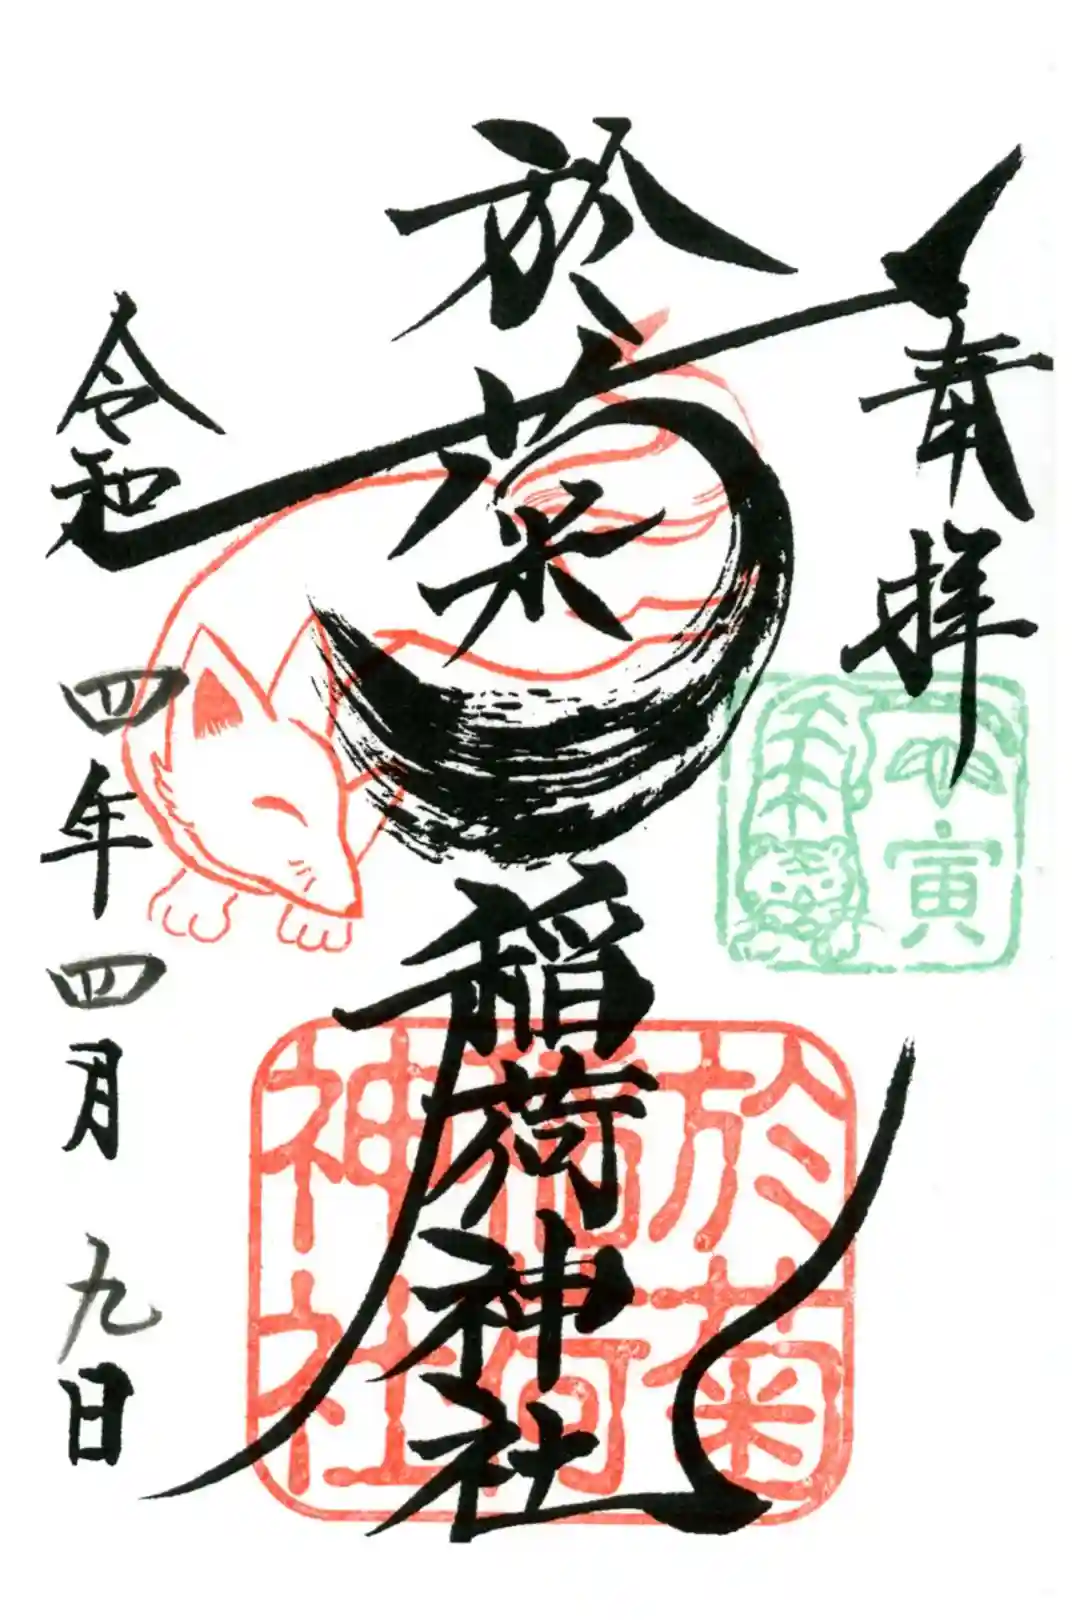 奉拝
於菊稲荷神社
令和四年四月九日
壬寅
於菊
稲荷
神社